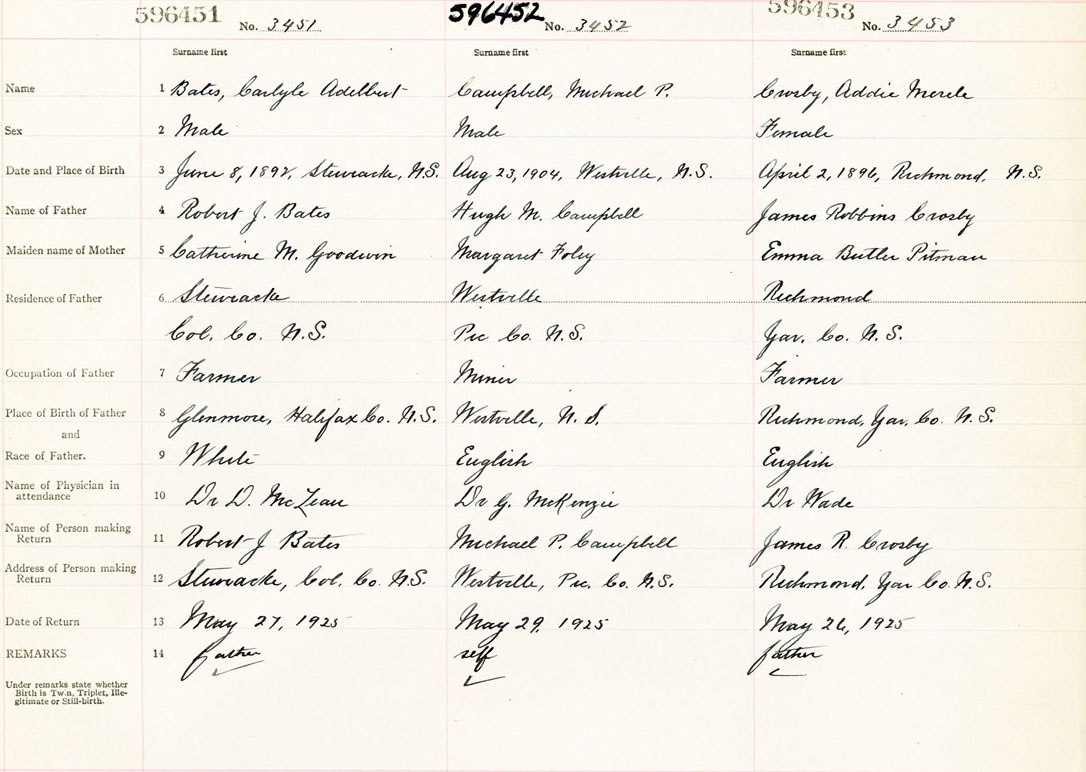 596451 No. 3451 596452 No. 3452 596453 No. 3453
Surname first Surname first Surname first
Name 1 Bates, Carlyle Adelbert Campbell, Michael P. Crosby, Addie Merele
Sex 2 Male Male Female
Date and Place of Birth 3 June 8, 1892, Stewiacke, N.S. Aug 23, 1904, Westville, N.S. April 2, 1896, Richmond, N.S.
Name of Father 4 Robert J. Bates Hugh M. Campbell James Robbins Crosby
Maiden name of Mother 5 Catherine M. Goodwin Margaret Foley Emma Butler Pitman
Residence of Father 6 Stewiacke Westville Richmond
Col. Co. N.S. Pic Co. N.S. Yar. Co. N.S.
Occupation of Father 7 Farmer Miner Farmer
Place of Birth of Father 8 Glenmore, Halifax Co. N.S. Westville, N.S. Richmond, Yar. Co. N.S.
and
Race of Father. 9 White English English
Name of Physician in
attendance 10 Dr D. McLean Dr G. McKenzie Dr Wade
Name of Person making
Return 11 Robert J Bates Michael P. Campbell James R. Crosby
Address of Person making
Return 12 Stewiacke, Col. Co. N.S. Westville, Pic. Co. N.S. Richmond, Yar Co. N.S.
Date of Return 13 May 27, 1925 May 29, 1925 May 26, 1925
REMARKS 14 father self father
Under remarks state whether
Birth is Twin, Triplet, Ille-
gitimate or Still-birth.